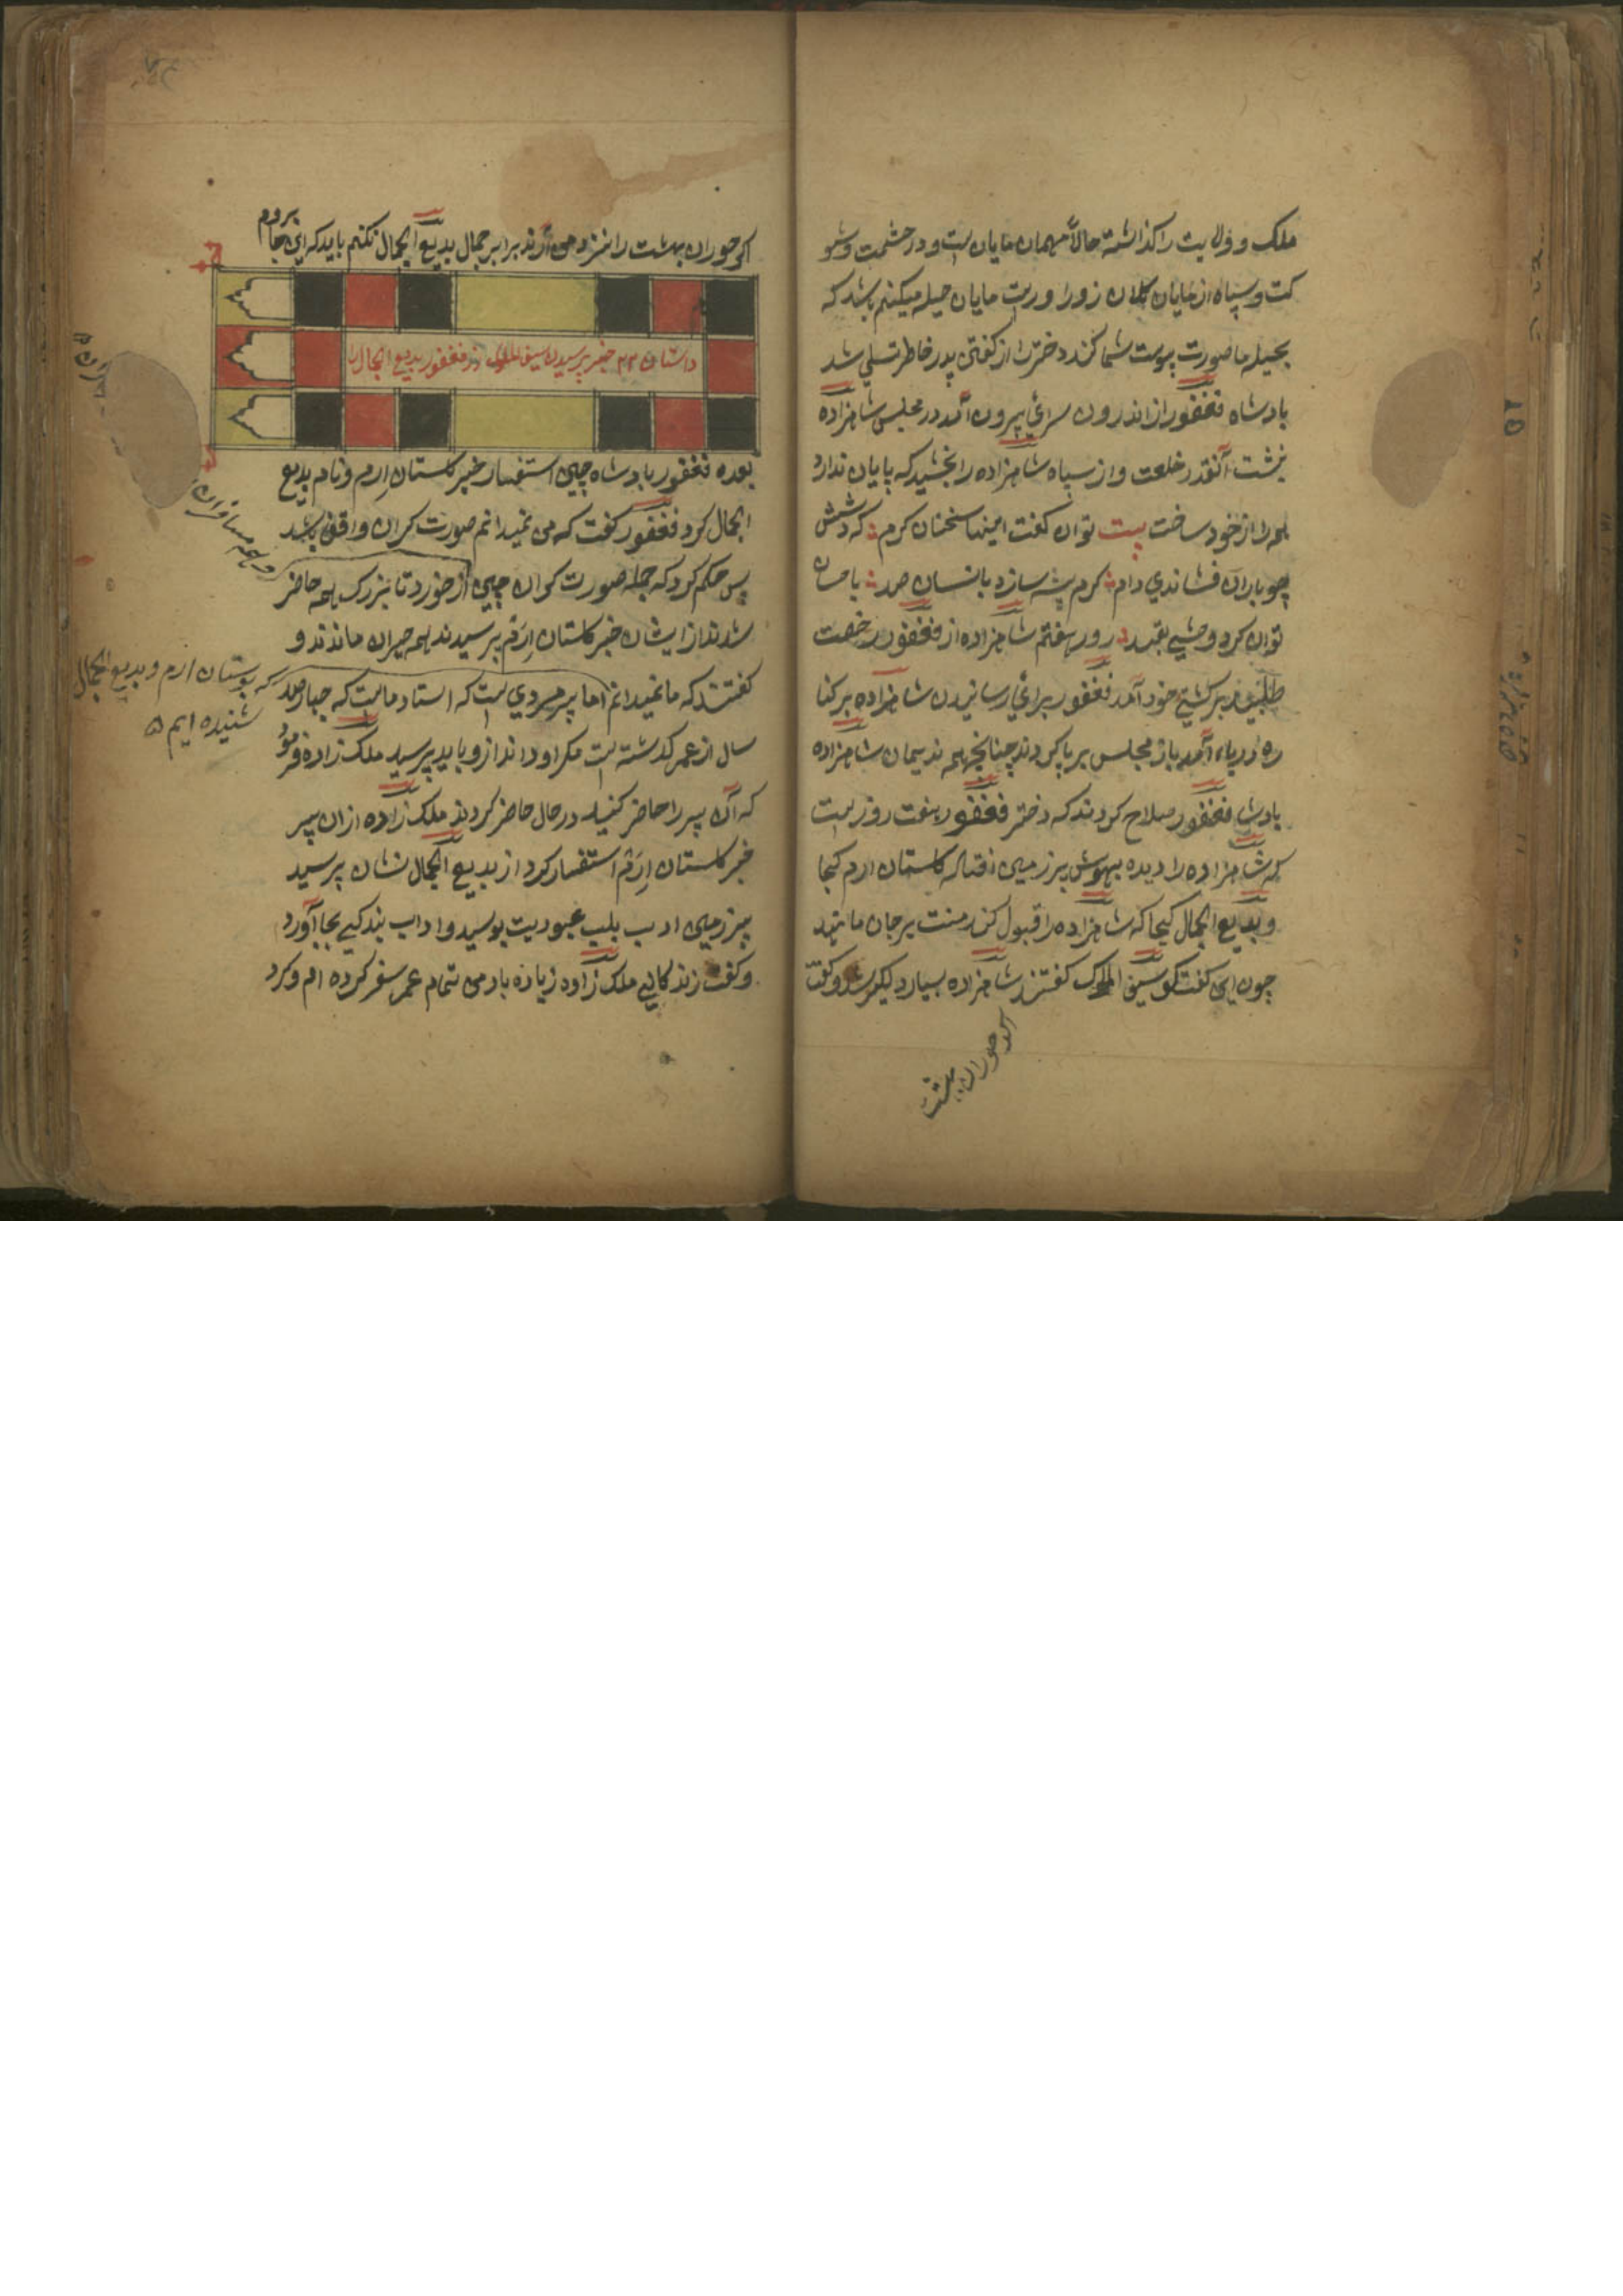 ملک و ولایت را کذاشته حالاً مهمان مایان است و در حشمت و شو
کت و سپاه از مایان کلان زور اورست مایان حیله میکنم باشد که
بحیله ما صورت پوست شما کند دختر را از کفتن پدر خاطر تسلي شد
بادشاه فغفور از اندرون سرای بیرون آمد در مجلس شاهزاده
نشت آنقدر خلعت و از سپاه شاهزاده را بخشید که پایان ندارد
همه را از خود ساخت بیت توان کفت اینها سخنان کرم که دشمش
چو باران فشاندي دام کرم پیشه سازد بانسان صد با حسان
توان کرد وحشي بقید روز هفتم شاهزاده از فغفور رخصت
طلبید بر کشتي خود آمد فغفور براي رسانیدن شاهزاده بر کنا
ره دریاء آمد باز مجلس برپا کردند چنانچه همه ندیمان شاهزاده
بادشا فغفور صلاح کردند که دختر فغفور هفت روز است
که شاهزاده را دیده بیهوش بر زمین افتاد کلستان ارم کجا
و بدیع الجمال کجا که شاهزاده قبول کند منت بر جان ما نهد
چون این کفت کو سیف الملوک کفتند شاهزاده بسیار دیلکیر شد و کفت
اکر حوران بهشت
اکر حوران بهشت را نزد من آرند برابر جمال بدیع الجمال نکنم باید که این جا
بروم
داستان ۲۲ خبر پرسیدن سیف الملوک از فغفور بدیع الجمال را
بعده فغفور بادشاه چین استفسار خبر کلستان ارم و نام بدیع
الجمال کرد فغفور کفت که من نمیدانم صورت کران واقف باشد
پس حکم کرد که جمله صورت کران چین از خورد تا بزرک همه حاضر
و همه مسافران
شدند از ایشان خبر کلستان ارم پرسیدند همه حیران ماندند و
کفتند که ما نمیدانم اما پیر مردي است که استاد ماست که چهار صد
که بوستان ارم و بدیع الجمال
شنیده ایم
سال از عمر کذشته است مکر او داند ازو باید پرسید ملک زاده فرمو
که آن پیر را حاضر کنید در حال حاضر کردند ملک زاده ازان پیر
خبر کلستان ارم استفسار کرد از بدیع الجمال نشان پرسید
پیر زمین ادب بلب عبودیت بوسید و اداب بندکي بجا آورد
و کفت زندکاني ملک زاده زیاده باد من تمام عمر سفر کرده ام و کرد